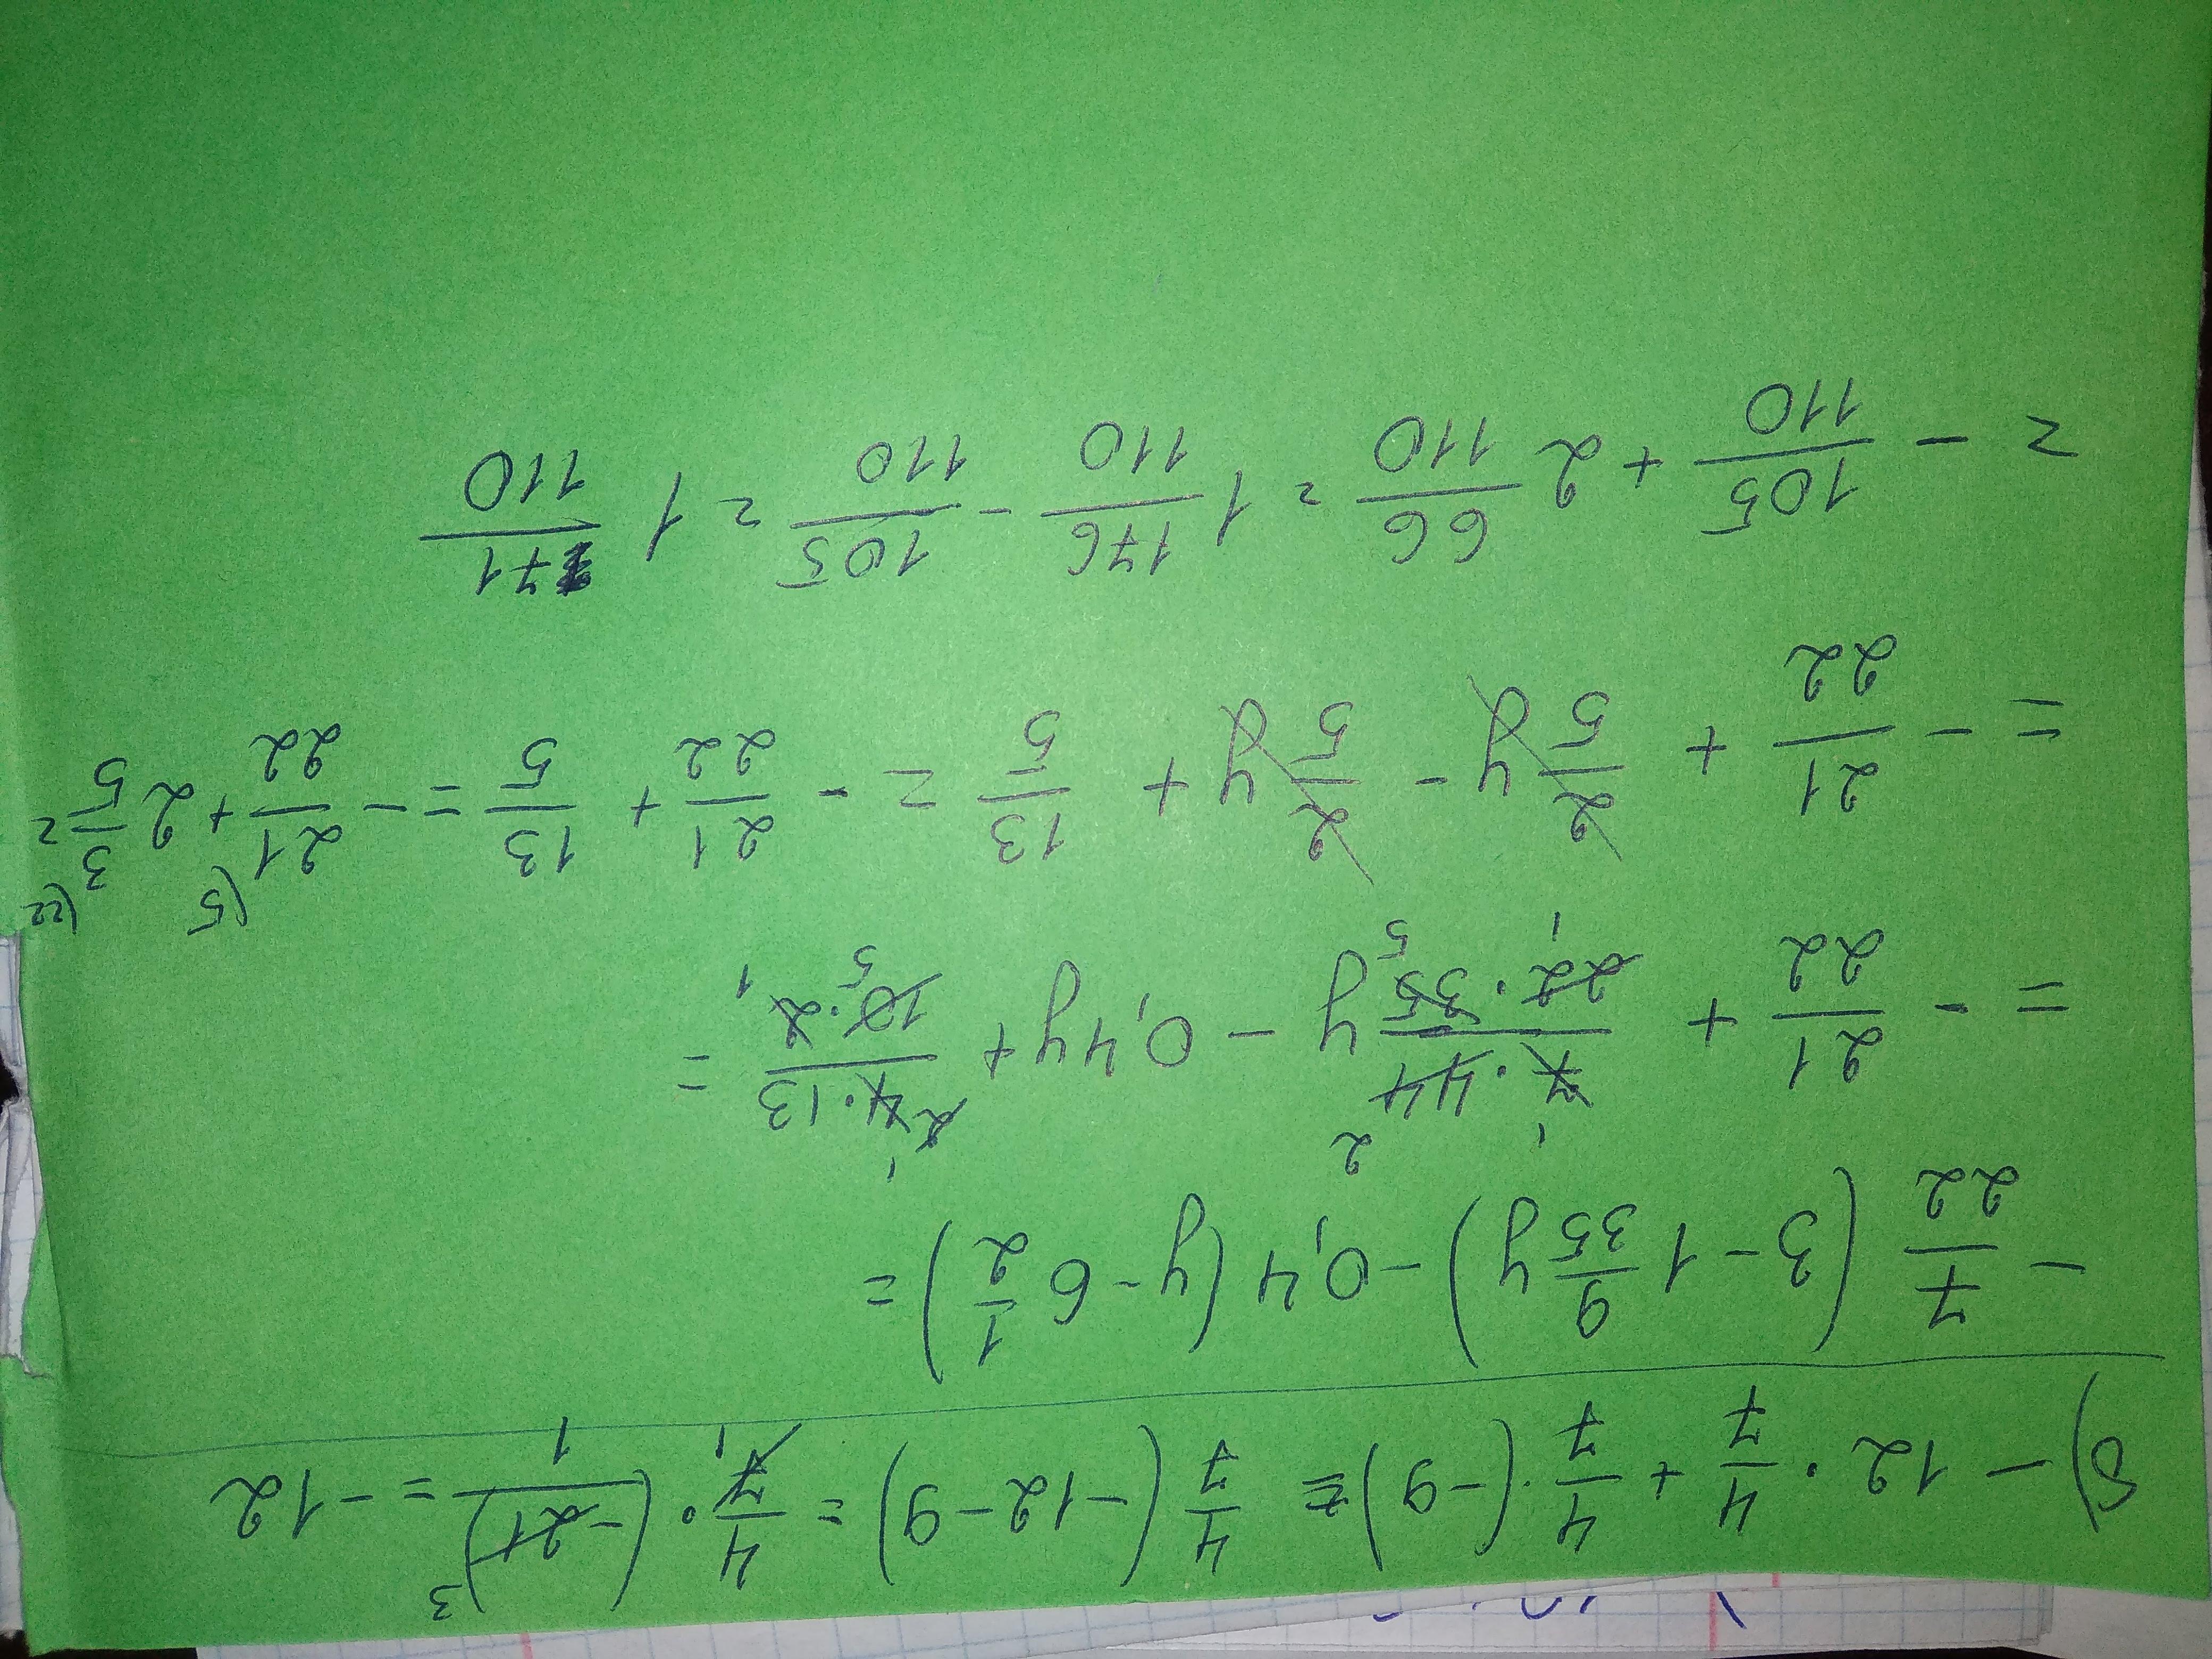 б) -12 · 4/7 + 4/7 · (-9) = 4/7 (-12-9) = 4/7 · (-21)/1 = -12
- 7/22 (3 - 1 9/35 y) - 0,4 (y - 6 1/2) =
= - 21/22 + 7·44/22·35 y - 0,4y + 4·13/10·2 =
= - 21/22 + 2/5 y - 2/5 y + 13/5 = - 21/22 + 13/5 = - 21/22 (5 + 2 3/5 (22 =
= - 105/110 + 2 66/110 = 1 176/110 - 105/110 = 1 71/110